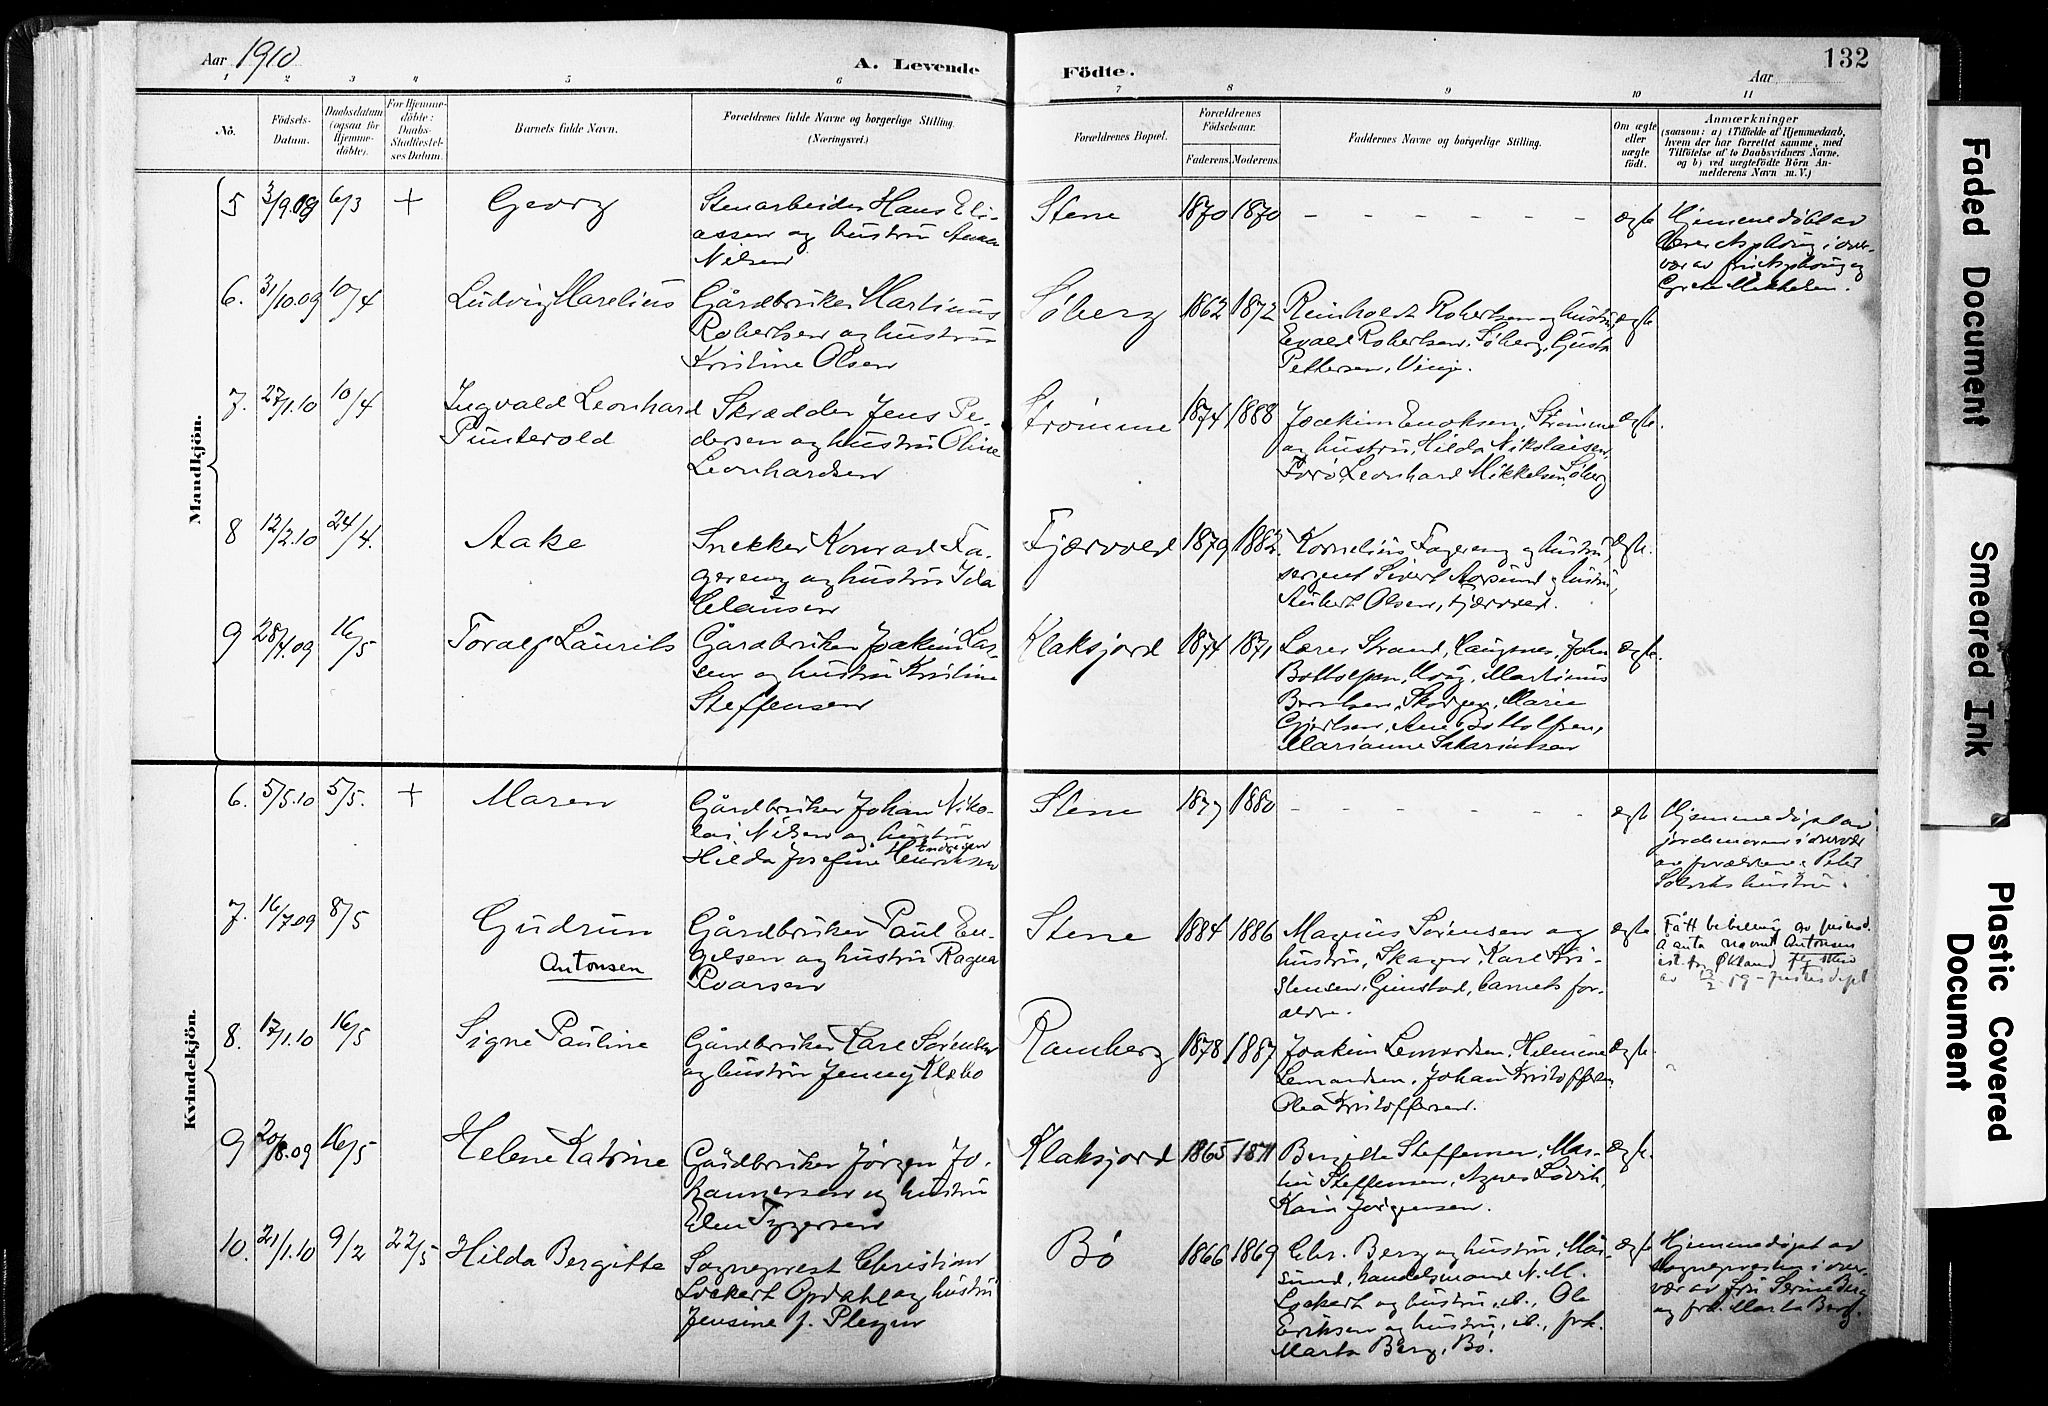 Aar 1910
A. Levende
Födte.
Aar
132
1 2 3 4 5 6 7 8 9 10 11
Nö.
Födsels-
Datum.
Daabsdatum
(ogsaa for
Hjemme-
döbte).
For Hjemme-
döbte:
Daabs-
Stadfæstel-
ses Datum.
Barnets fulde Navn.
Forældrenes fulde Navne og borgerlige Stilling.
(Næringsvei.)
Forældrenes Bopæl.
Forældrenes
Födselsaar.
Faderens. Moderens.
Faddernes Navne og borgerlige Stilling.
Om ægte
eller
uægte
födt.
Anmærkninger
(saasom: a) i Tilfælde af Hjemmedaab,
hvem der har forrettet samme, med
Tilföielse af to Daabsvidners Navne.
og b) ved uægtefödte Börn An-
melderens Navn m. V.)
Mandkjön.
5 3/9.09 6/3 + Georg
Stenarbeider Hans Eli-
assen og hustru Anna
Nilsen
Stene 1870 1870 - - - - - - - ægte
Hjemmedöbt av
6. 31/10.09 10/4 Ludvig Marelius
Gårdbruker Martinus
Robertsen og hustru
Kristine Olsen
Söberg 1862 1872
Reinholdt Robertsen og hustru,
Evald Robertsen, Söberg, Gusta
Pettersen, Vinje.
ægte
7. 27/1.10 10/4 Ingvald Leonhard
Puntervold
Skrædder Jens Pe-
dersen og hustru Oline
Leonhardsen
Strömme 1874 1888
Joakim Enoksen, Strömme
og hustru, Hilda Nikolaisen
Forö, Leonhard Mikkelsen, Söberg
ægte.
8 12/2.10 24/4. Aake
Snekker Konrad Fa-
gereng og hustru Ida
Clausen
Fjærvold 1879 1882
Kornelius Fagereng og hustru,
sergent Sivert Aarsund og hustru,
Olsen, Fjærvold.
ægte.
9 28/4.09 16/5 Toralf Laurits
Gårdbruker Joakim Las-
sen og hustru Kristine
Steffensen
Klaksjord 1874 1871
Lærer Strand, Langnes, John
Bottolfsen, Martinus
Berntsen, Skorgen, Marie
Gjertsen, Ane Bottolfsen,
Marianne Sakariassen
ægte.
Kvindekjön.
6. 5/5.10 5/5. + Maren
Gårdbruker Johan Niko-
lai Nilsen og hustru
Endresen
Hilda Josefine Henriksen
Stene 1877 1880 - - - - - - ægte
Hjemmedöpt av
jordemoren i overvær
av forældrene, Peter
Solviks hustru.
7. 16/7.09 8/5 Gudrun
Antonsen
Gårdbruker Paul En-
gelsen og hustru Ragna
Roarsen
Stene 1884 1886
Magnus Sörensen og
hustru, Skagen, Karl Kri-
stensen, Gimstad, barnets for-
ældre.
ægte.
Fått bevilling av
å anta navnet Antonsen
8. 17/1.10 16/5 Signe Pauline
Gårdbruker Karl Sörensen
og hustru Jenny Klæbo
Ramberg 1878 1887
Joakim Lenardsen, Helmine
Lenardsen, Johan Kristoffersen,
Olea Kristoffersen.
ægte.
9 20/8.09 16/5 Helene Katrine
Gårdbruker Jörgen Jo-
hannessen og hustru
Elen Tygesen
Klaksjord 1865 1871
Bergitte Steffensen, Mar-
tin Steffensen, Agnes Lövik,
Karin Jörgensen.
ægte.
10. 21/1.10 9/2 22/5 Hilda Bergitte
Sogneprest Christian
Lockert Opdahl og hustru
Jensine f. Pleym
Bö 1866 1869
Chr. Berg og hustru, Mål-
sund, handelsmand N. M.
Lockert og hustru, ib., Ole
Eriksen og hustru, ib., frk.
Marta Berg, Bö.
ægte
Hjemmedöpt av
sognepresten i over-
vær av fru Serine Berg
og frk. Marta Berg.
Faded Document
Smeared Ink
Plastic Covered
Document